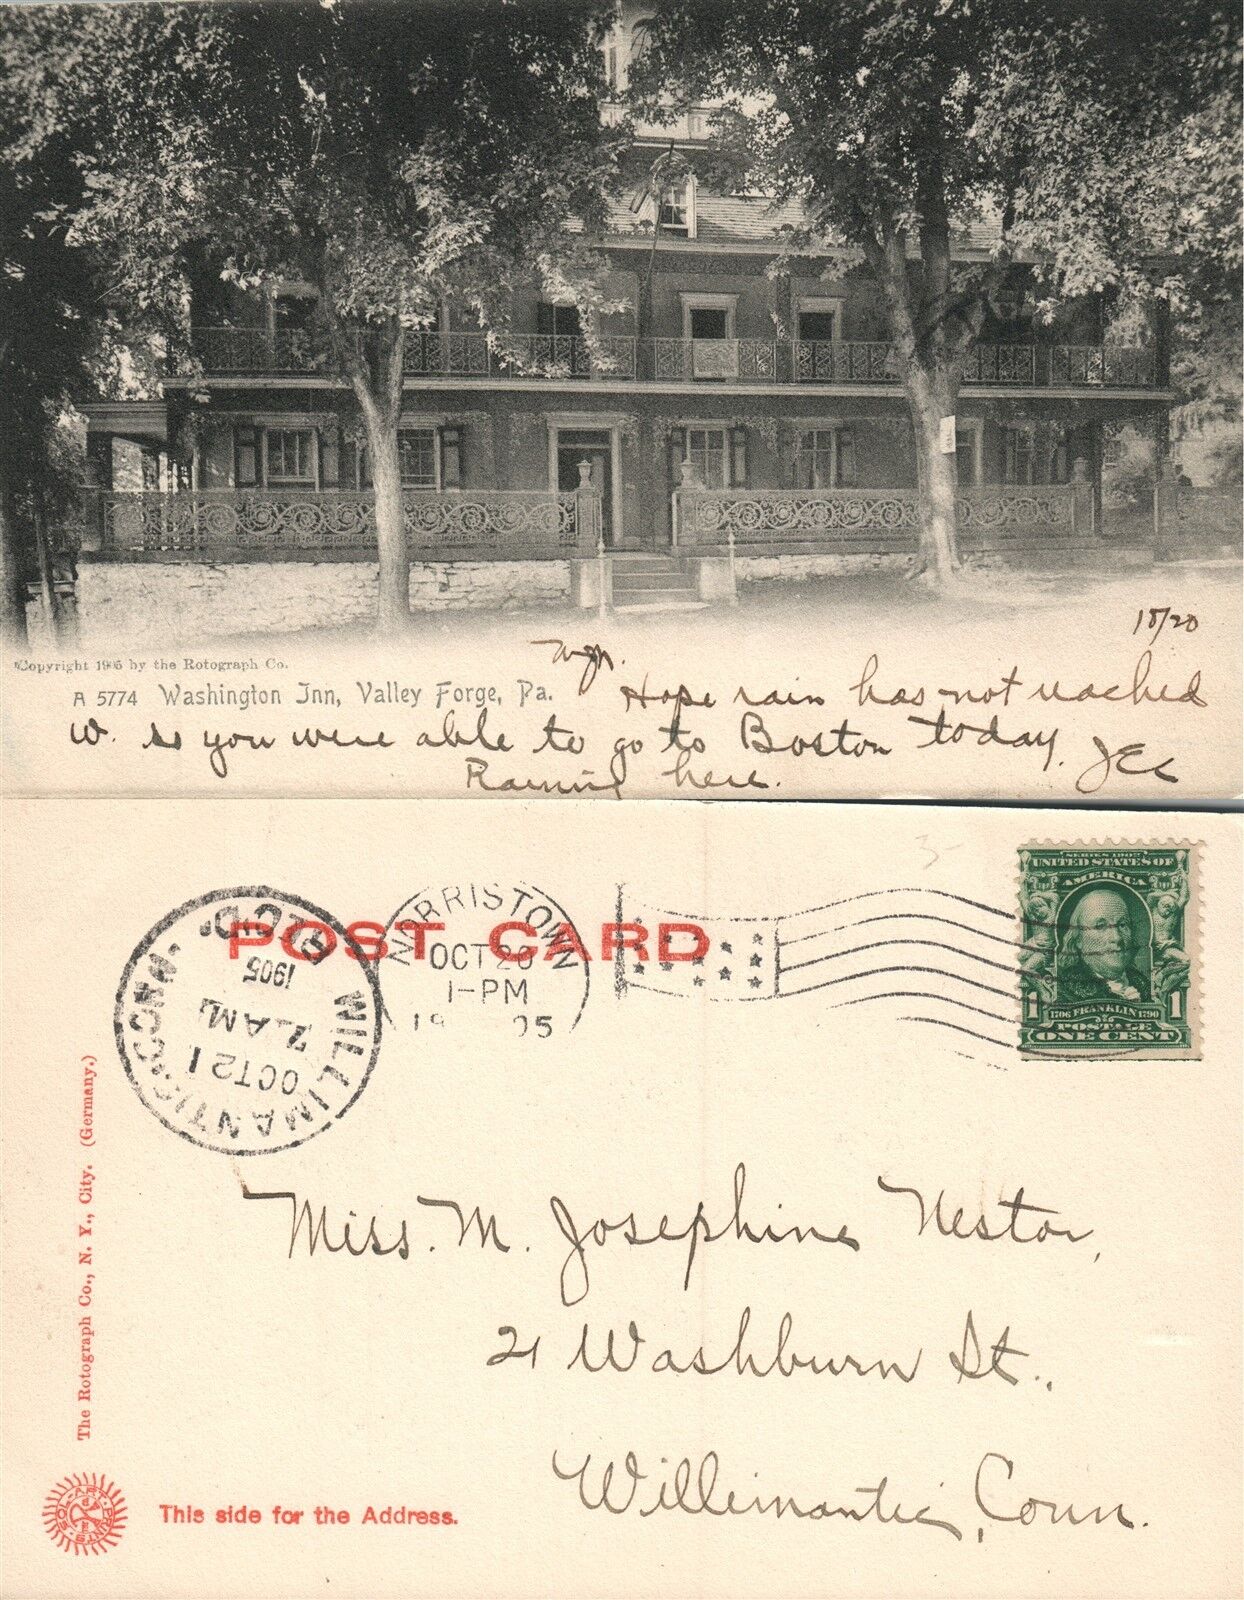 10/20
Copyright 1905 by the Rotograph Co.
A 5774 Washington Inn, Valley Forge, Pa.
Hope rain has not reached
W. so you were able to go to Boston today. JEC
Raining here.
POST CARD
WILLIMANTIC, CONN. REC'D.
OCT 21
7 AM
1905
NORRISTOWN
OCT 20
1-PM
19 05
SERIES 1902
UNITED STATES OF
AMERICA
1 1706 FRANKLIN 1790 1
POSTAGE
ONE CENT
3-
The Rotograph Co., N. Y., City. (Germany.)
Miss. M. Josephine Nestor,
21 Washburn St.,
Willimantic, Conn.
SOL-ART PRINTS
This side for the Address.